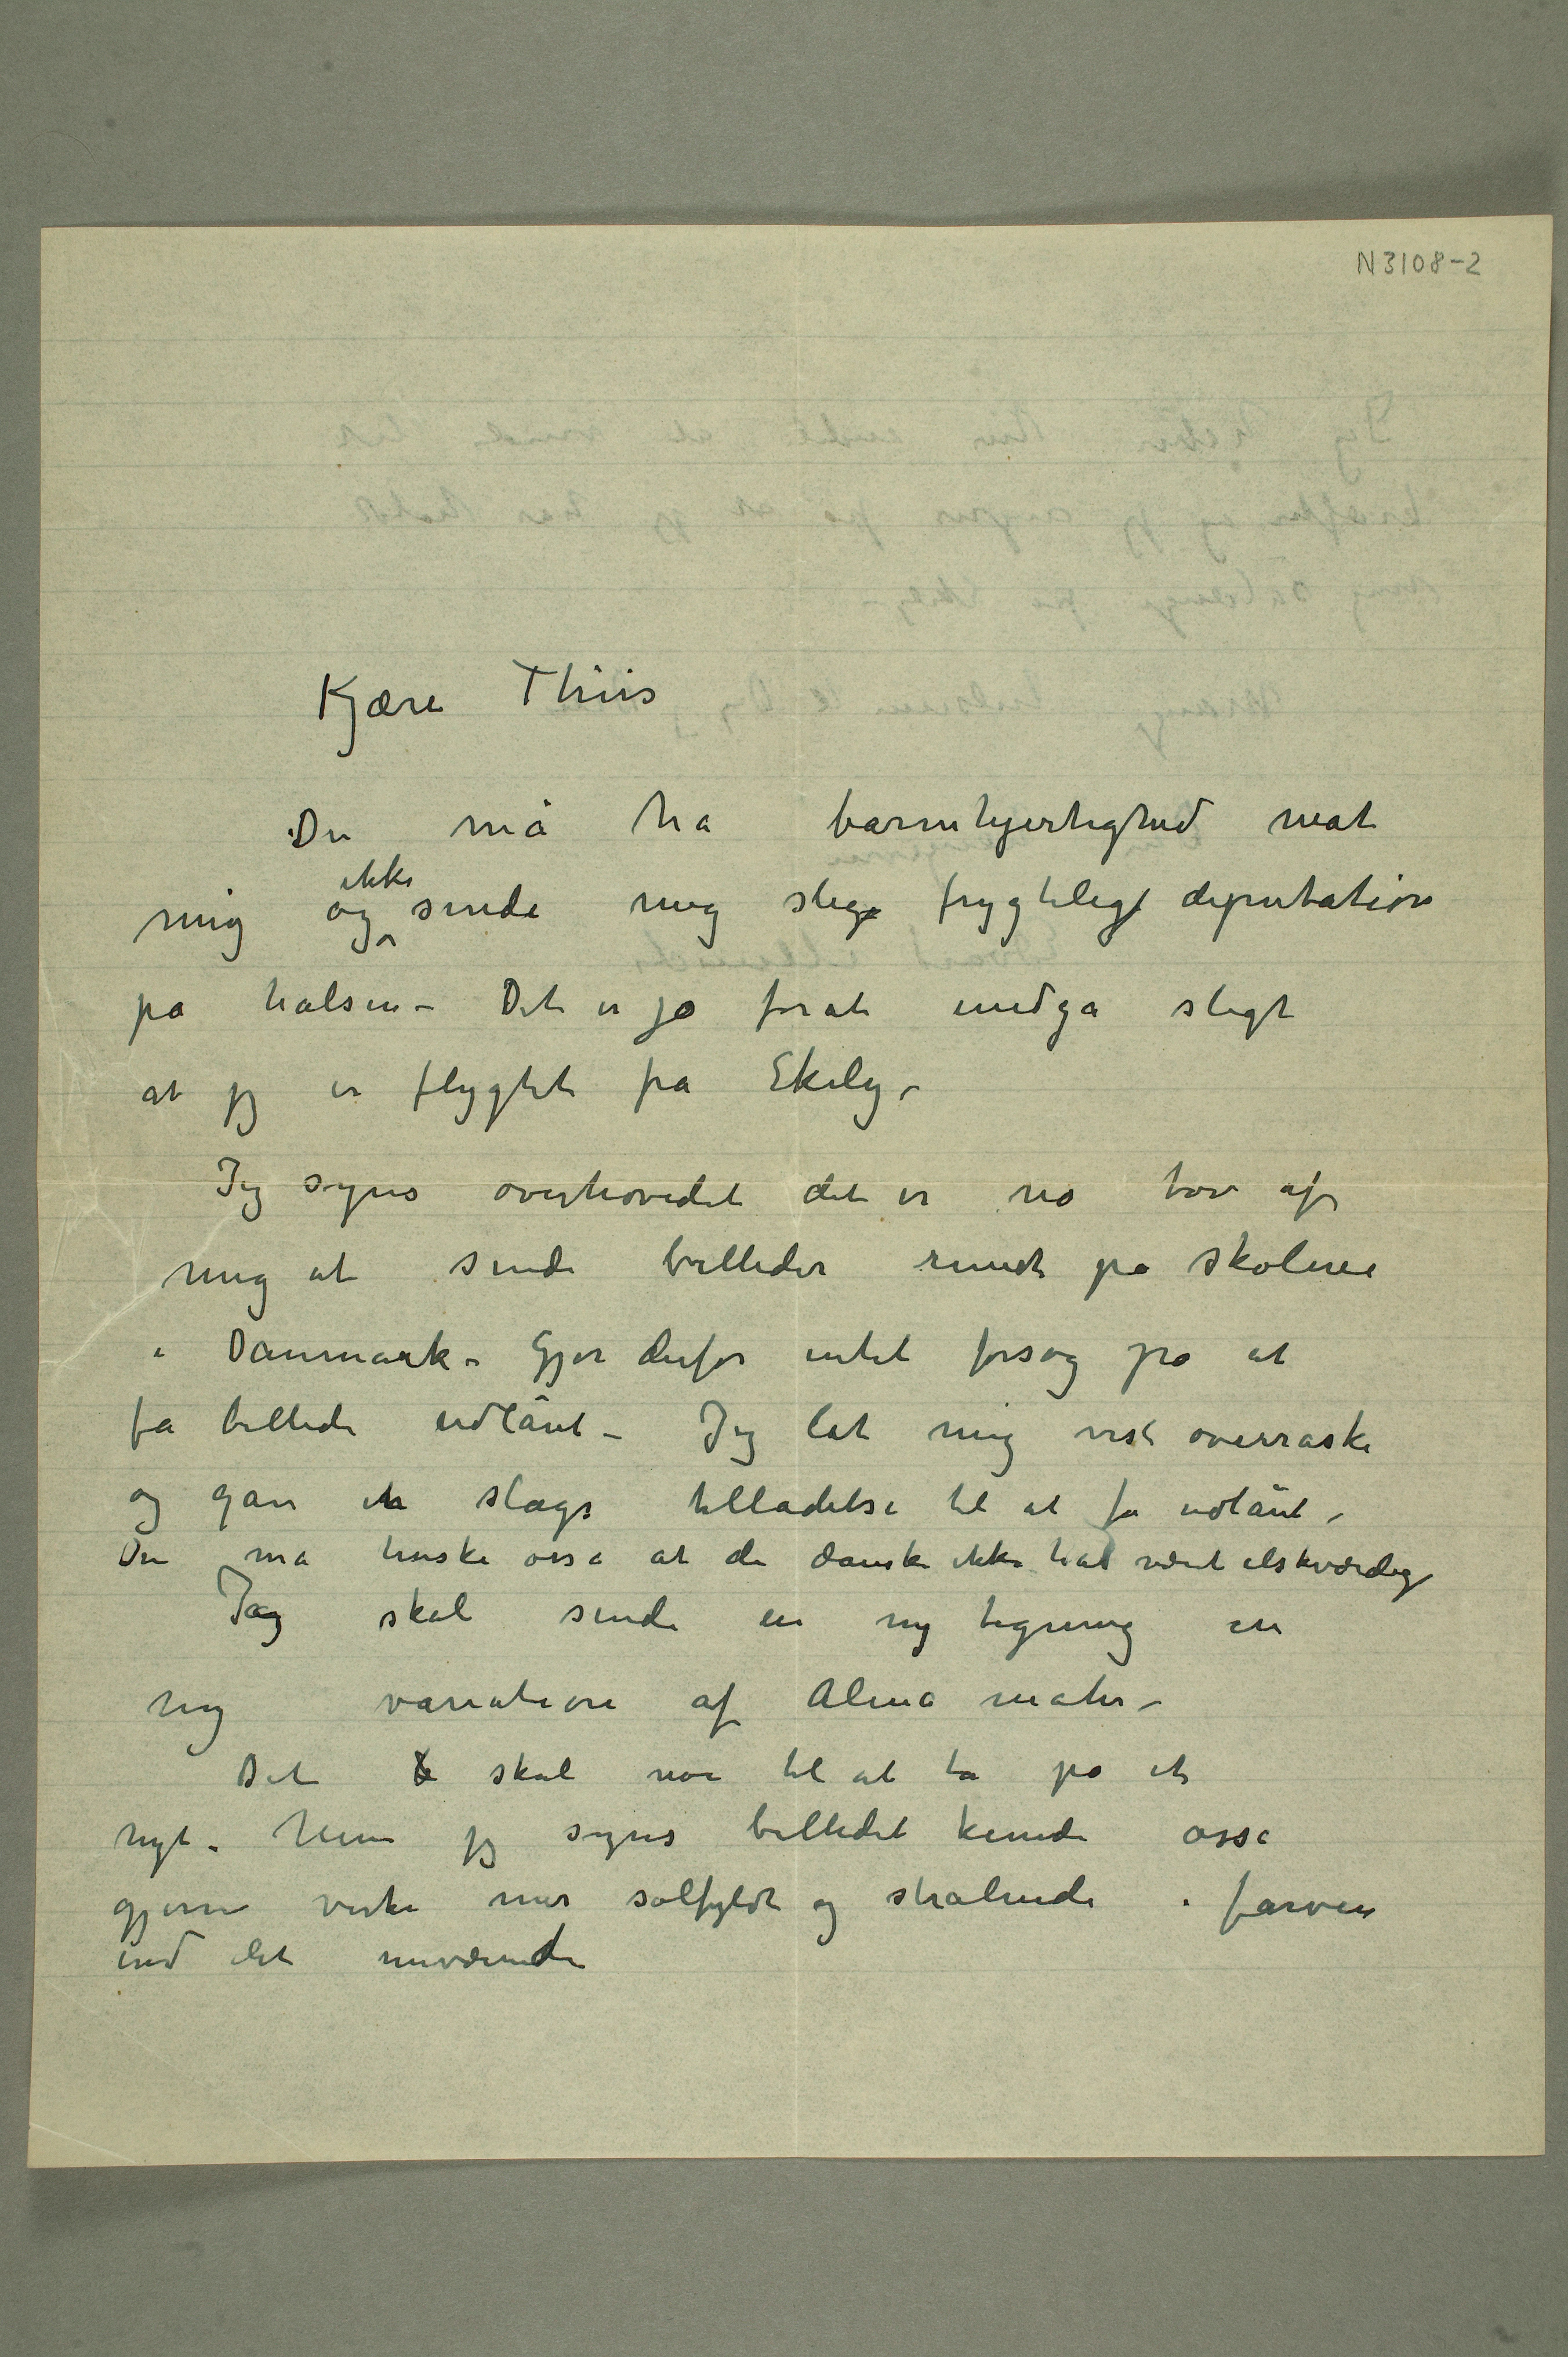 N3108-2
Kjære Thiis
Du må ha barmhjertighed mot
mig og ikke sende mig slig frygtelig deputation
på halsen – Det er jo forat undgå sligt
at jeg er flygtet fra Ekely –
Jeg synes overhovedet det er no tøv af
mig at sende billeder rundt på skolene
i Danmark – Gjør derfor intet forsøg på at
få billede udlånt – Jeg lot mig vist overraske
og gav en slags tilladelse til at få udlånt –
Du må huske osså at de danske ikke har været elskværdig
Jeg skal sende en ny tegning en
ny variation af Alma mater –
Det skal mod til at ta på et
nyt – Men jeg synes billedet kunde osså
gjerne virke mer solfyldt og strålende i farven
end det nuværende